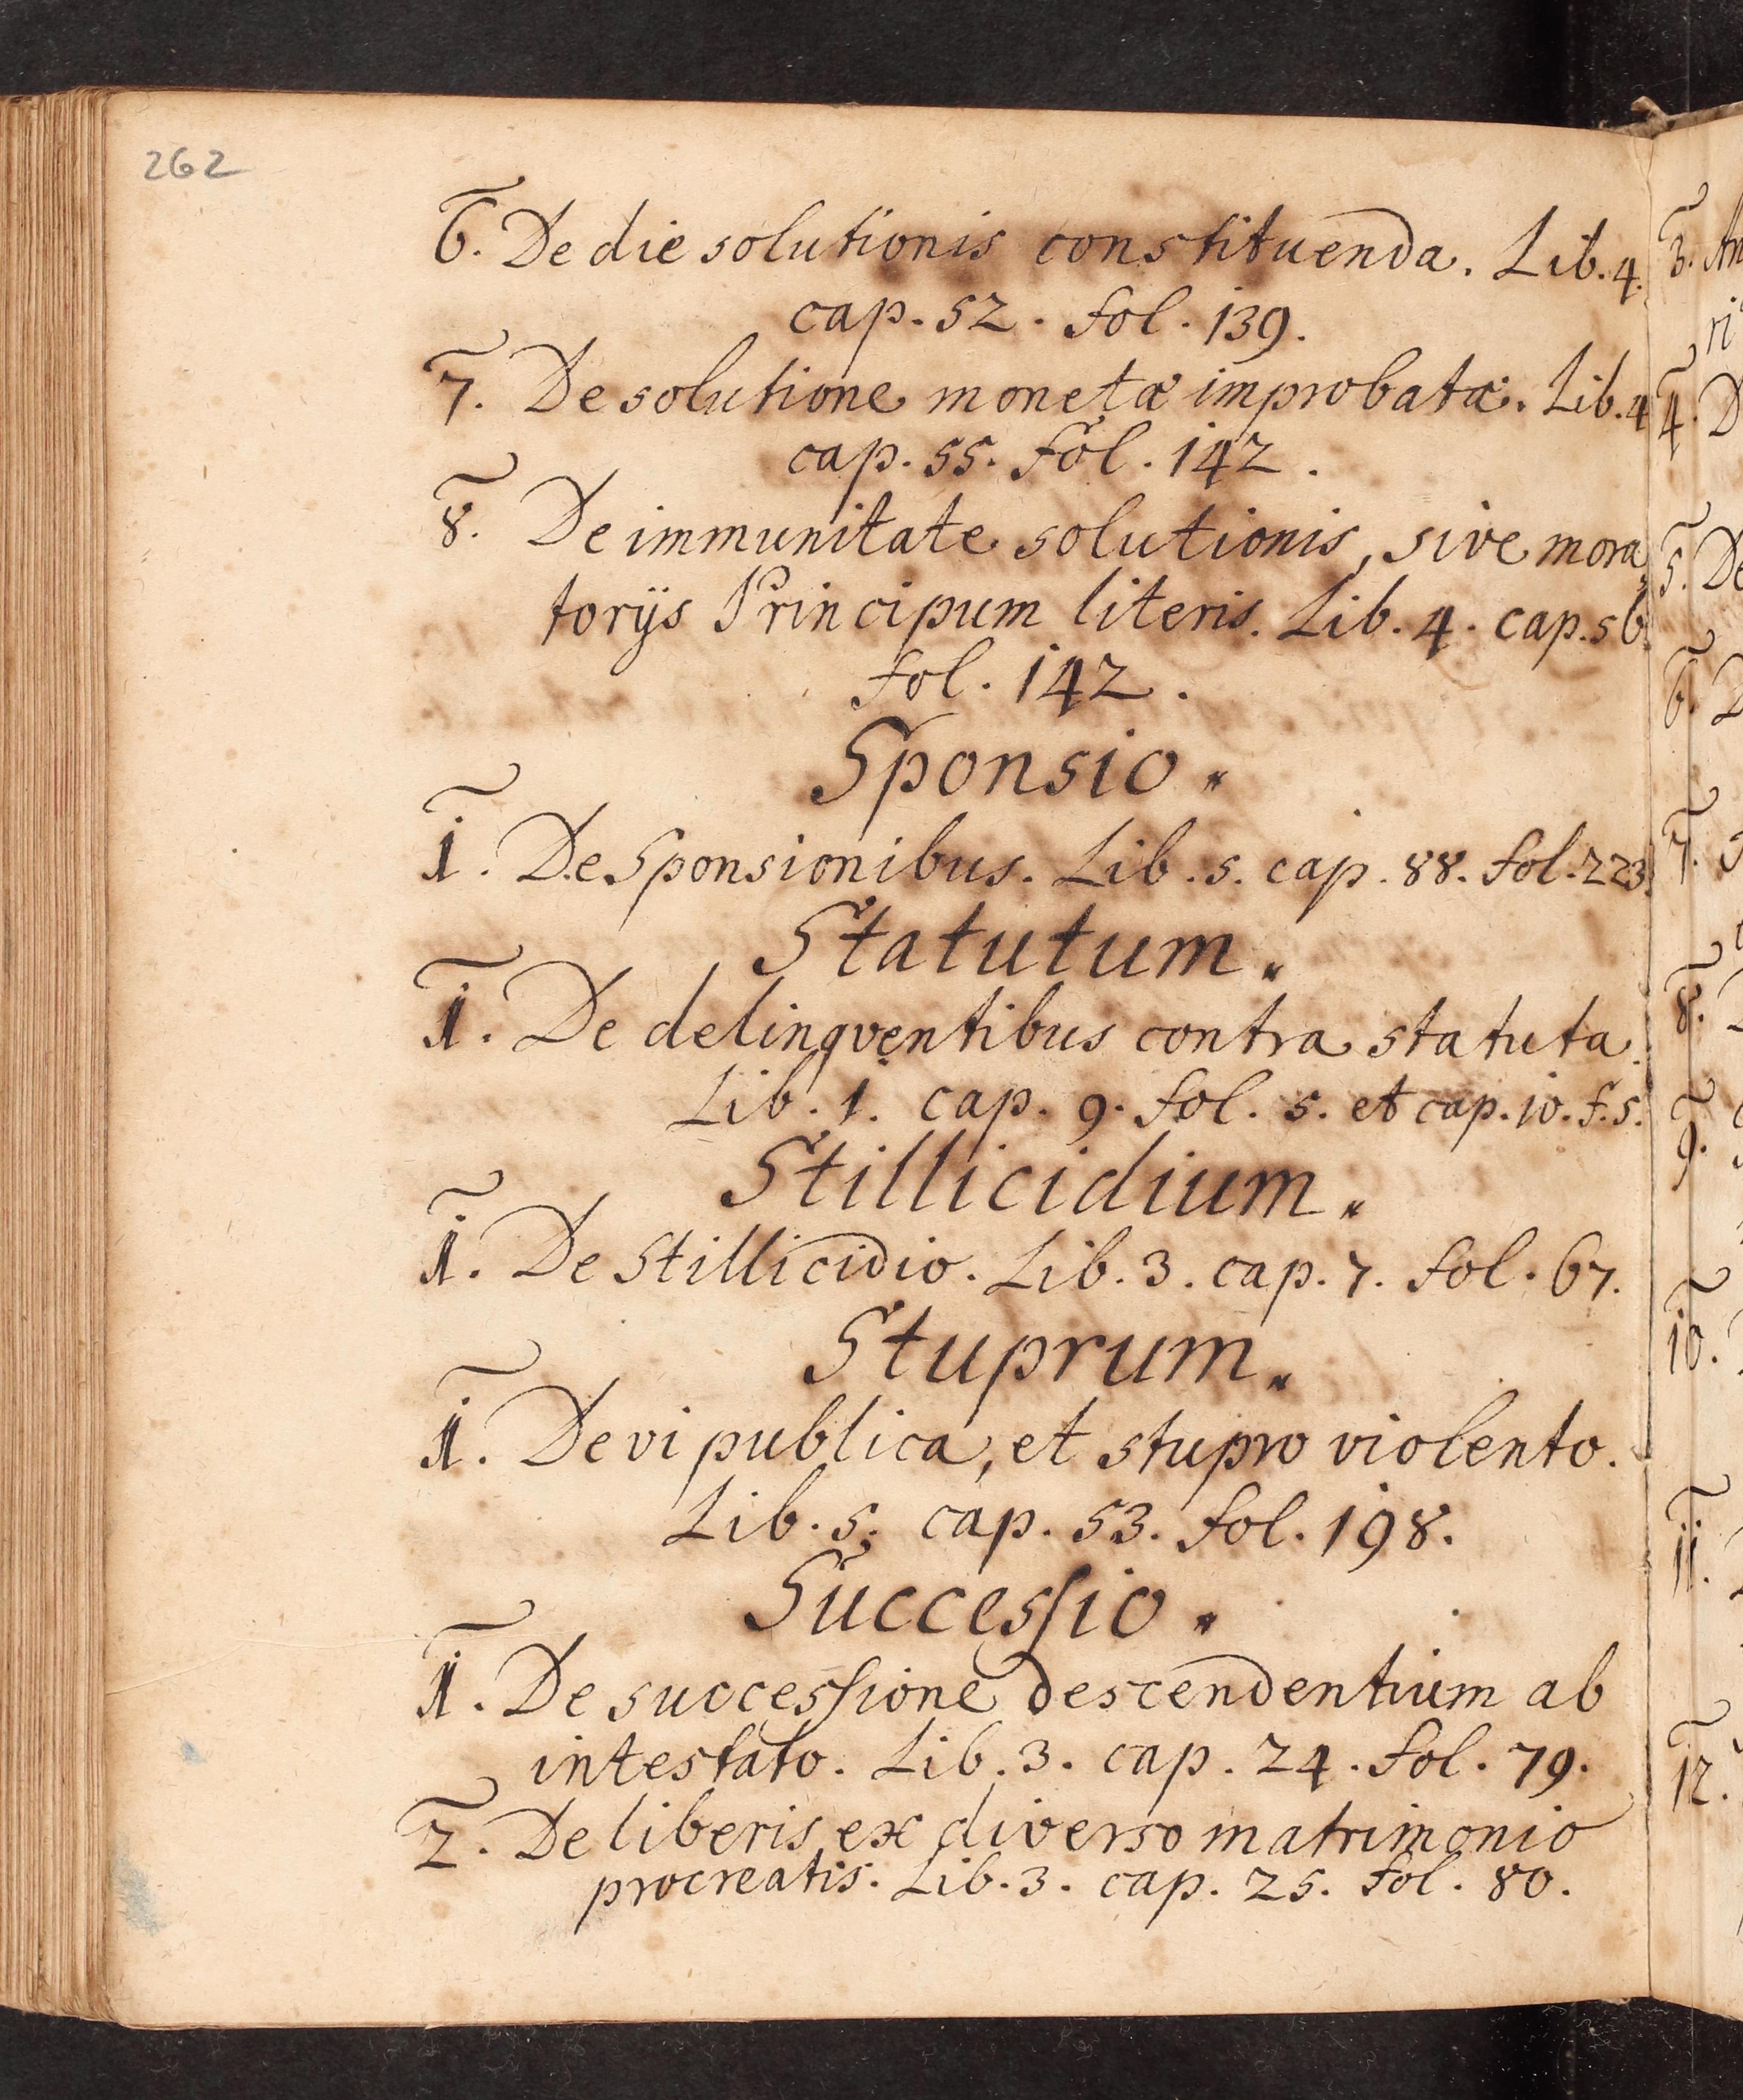 262
6. De die solutionis constituenda. Lib. 4.
cap. 52. fol. 139.
7. De solutione monetæ improbatæ. Lib. 4
cap. 55. fol. 142.
8. De immunitate solutionis, sive mora,
torijs Principum literis. Lib. 4. cap. 56.
fol. 142.
Sponsio.
1. De Sponsionibus. Lib. 5. cap. 88. fol. 223.
Statutum.
1. De delinqventibus contra statuta.
Lib. 1. cap. 9. fol. 5. et cap. 10. f. 5.
Stillicidium.
1. De Stillicidio. Lib. 3. cap. 7. fol. 67.
Stuprum.
1. De vi publica, et stupro violento.
Lib. 5. cap. 53. fol. 198.
Succesſio.
1. De succesſione descendentium ab
intestato. Lib. 3. cap. 24. fol. 79.
2. De liberis ex diverso matrimonio
procreatis. Lib. 3. cap. 25. fol. 80.
3. An
ri
4. D
5. De
6. D
7.
8.
9.
10.
11.
12.